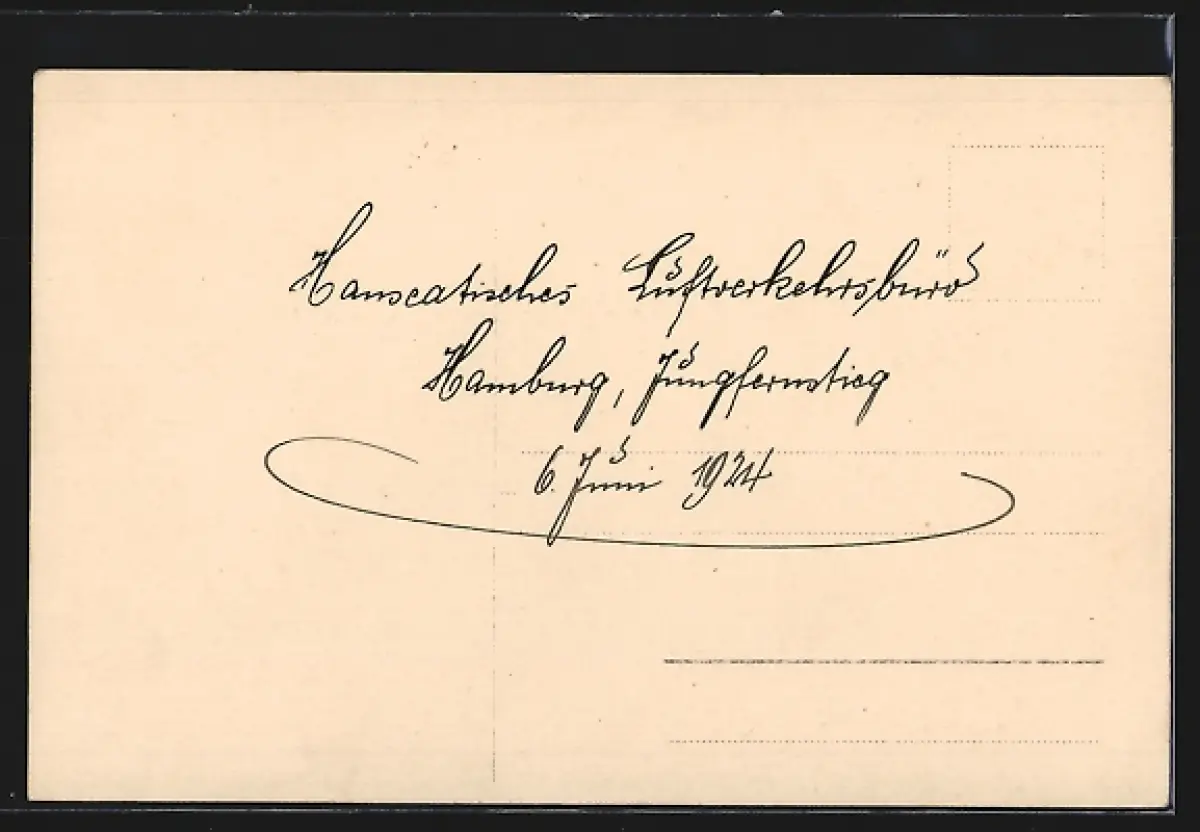 Hanseatisches Luftverkehrsbüro
Hamburg, Jungfernstieg
6. Juni 1924